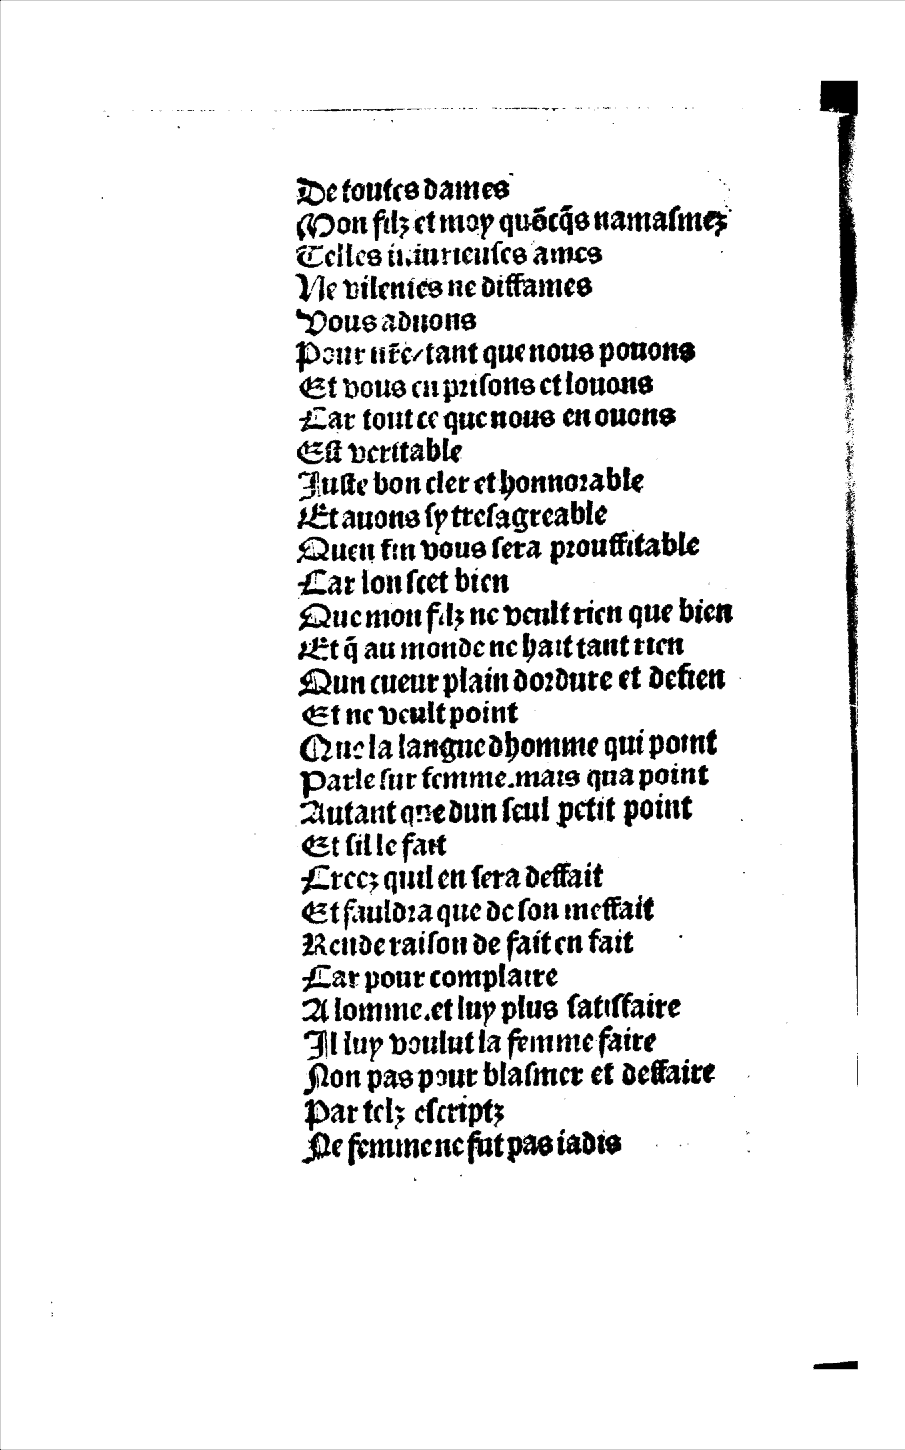 De toutes dames
Mon filz et moy quõcq̃s namasmez
Telles iniurieuses ames
Ne vilenies ne diffames
Vous aduons
Pour nr̃e/tant que nous pouons
Et vous en prisons et louons
Car tout ce que nous en ouons
Est veritable
Juste bon cler et honnorable
Et auons sy tresagreable
Quen fin vous sera prouffitable
Car lon scet bien
Que mon filz ne veult rien que bien
Et q̃ au monde ne hait tant rien
Qun cueur plain dordure et de fien
Et ne veult point
Que la langue dhomme qui point
Parle sur femme.mais qua point
Autant que dun seul petit point
Et sil le fait
Creez quil en sera deffait
Et fauldra que de son meffait
Rende raison de fait en fait
Car pour complaire
A lomme.et luy plus satisfaire
Il luy voulut la femme faire
Non pas pour blasmer et deffaire
Par telz escriptz
De femme ne fut pas iadis